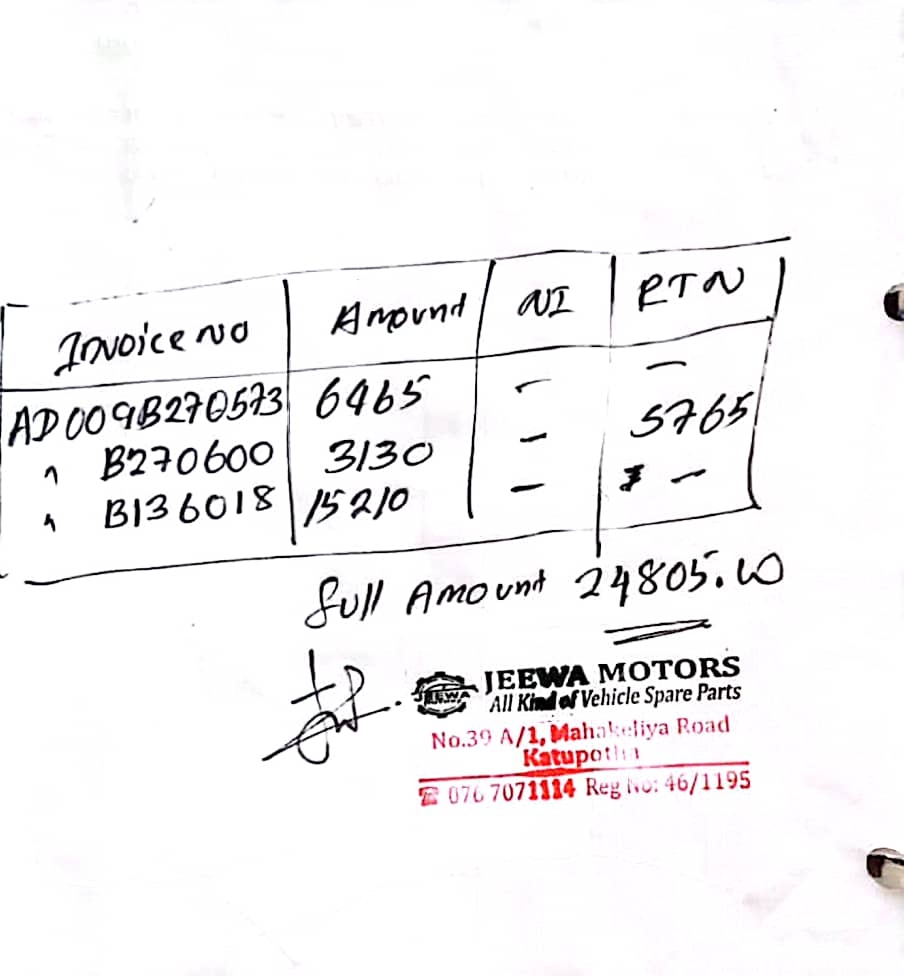 Invoice NO Amount NI RTN
AD009B270573 6465 - -
" B270600 3130 - 5765
" B136018 15210 - -
full Amount 24805.00
JEEWA
JEEWA MOTORS
All Kind of Vehicle Spare Parts
No.39 A/1, Mahakeliya Road
Katupotha
☎ 076 7071114 Reg No: 46/1195